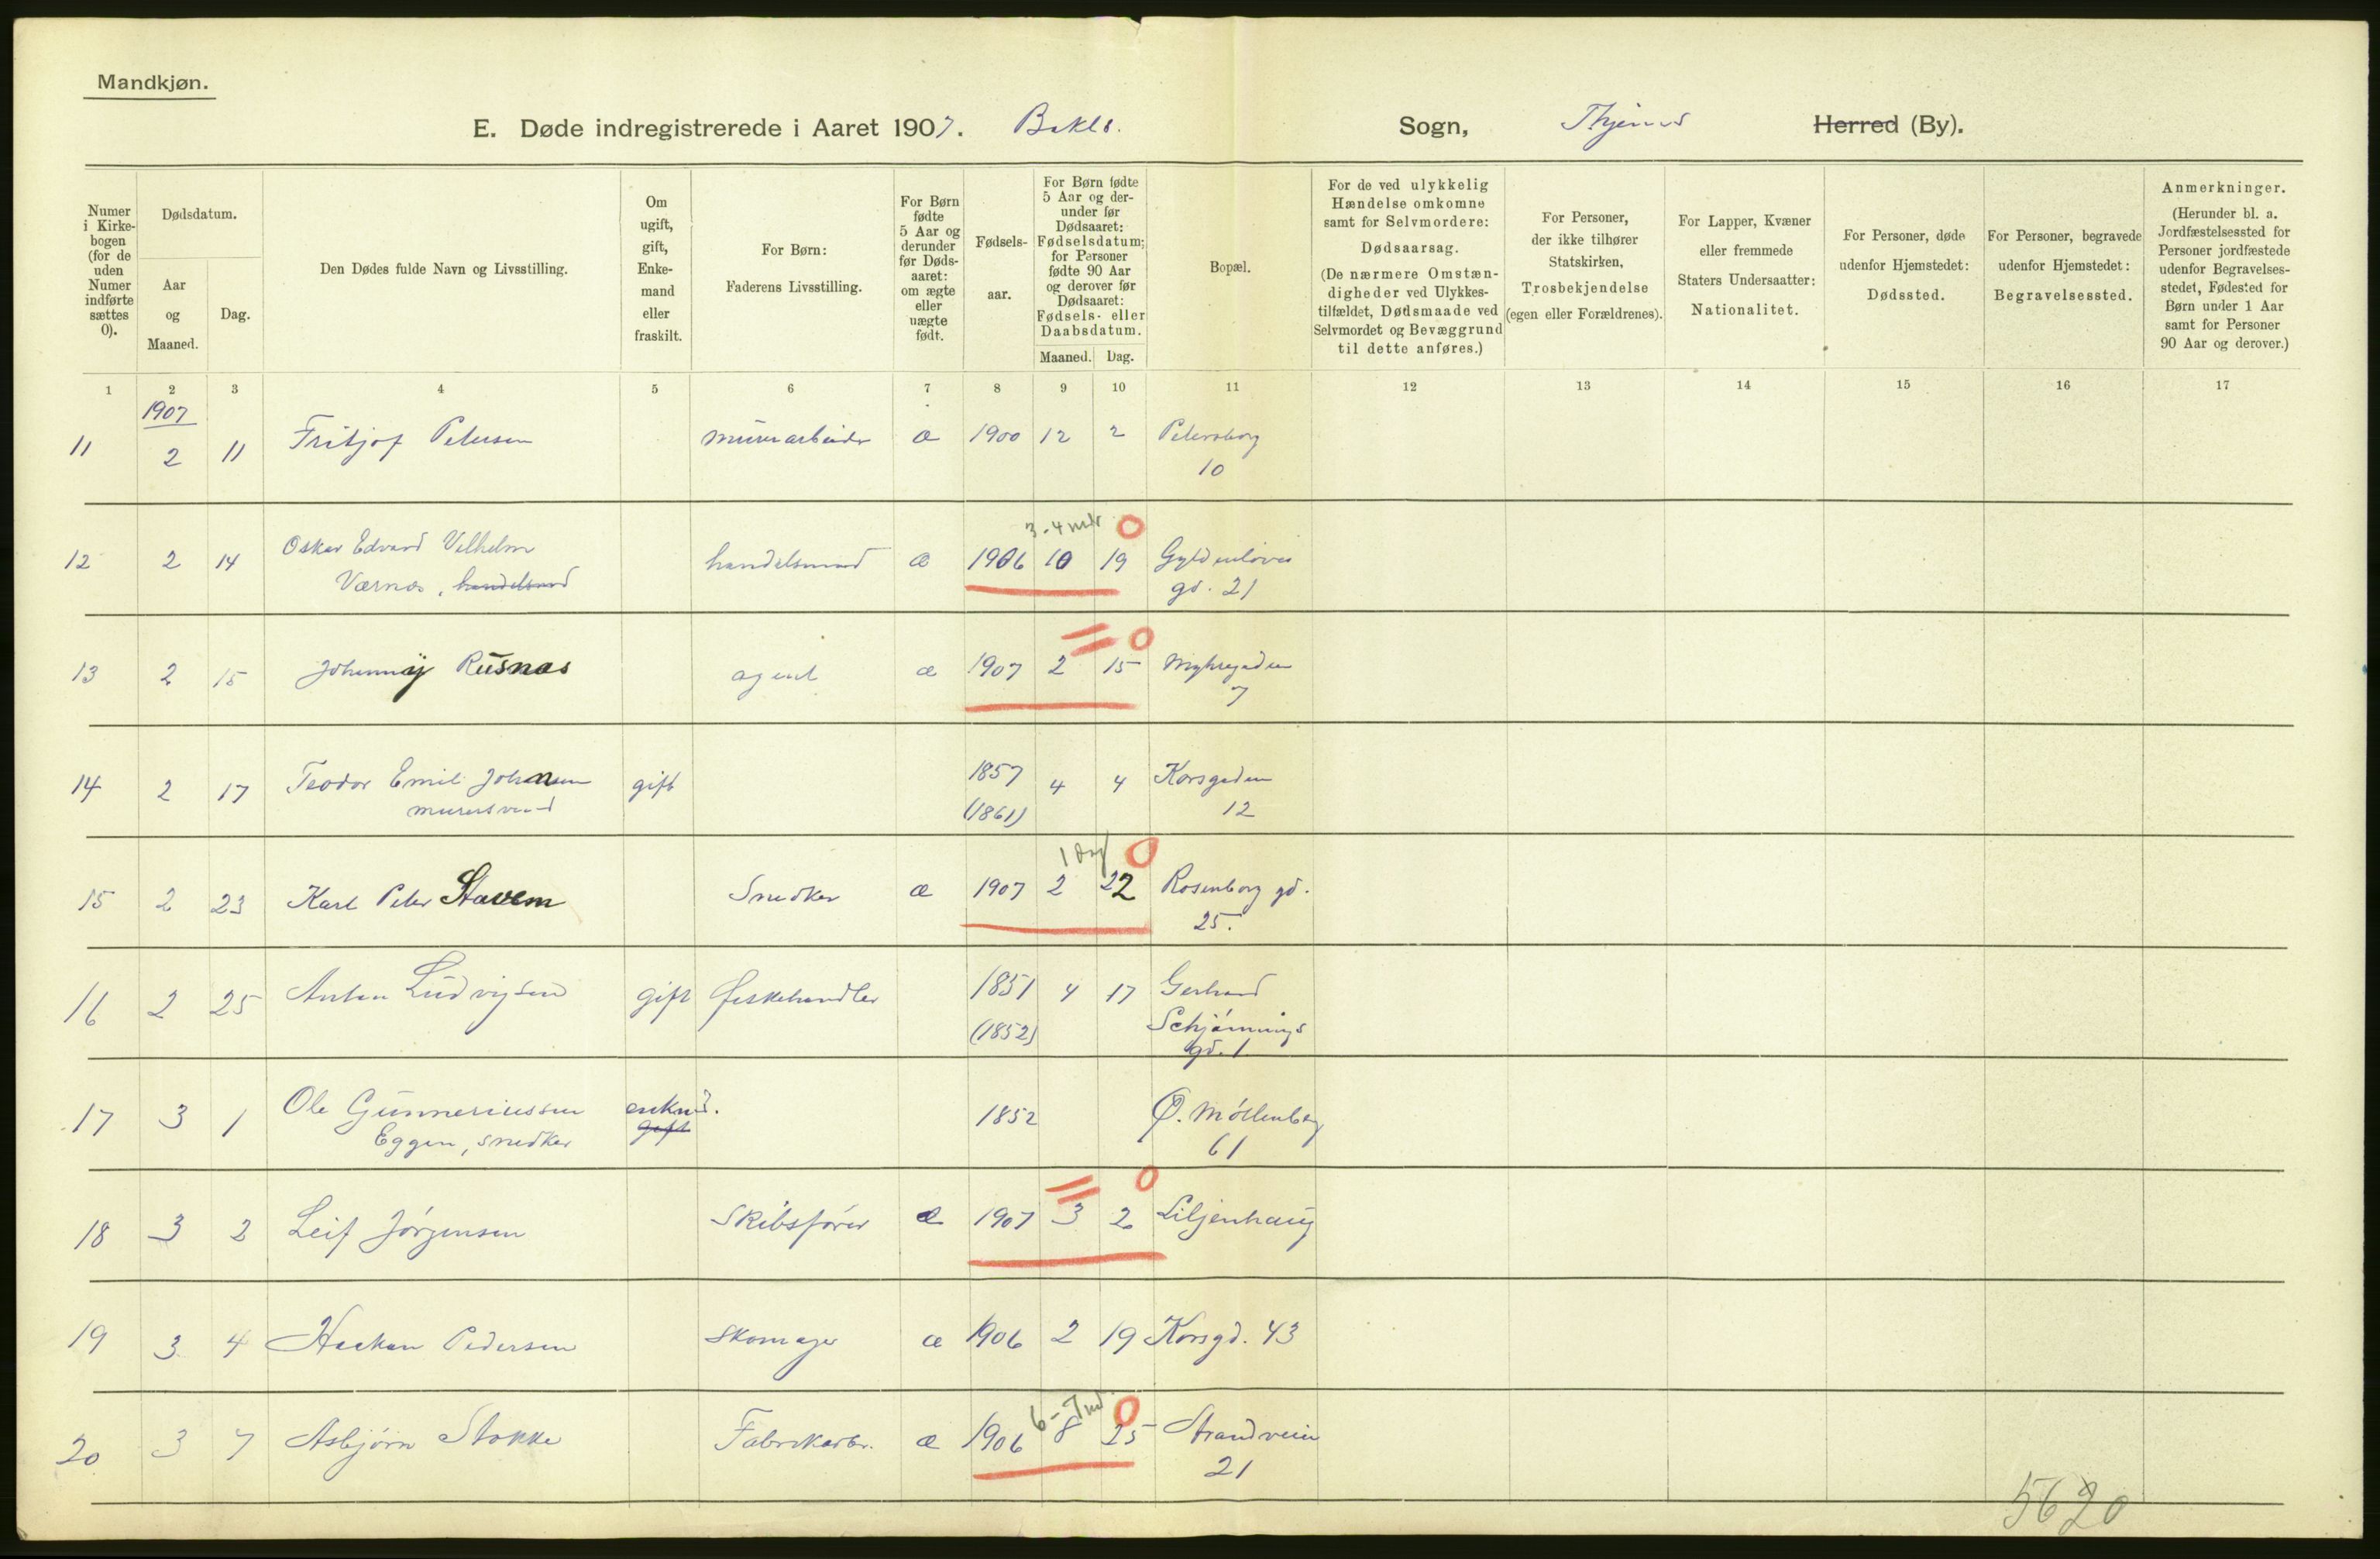 Mandkjøn.
E. Døde indregistrerede i Aaret 1907. Bakle. Sogn, Thjems Herred (By).
Numer i Kirkebogen (for de uden Numer indførte sættes 0).
Dødsdatum.
Aar og Maaned.
Dag.
Den Dødes fulde Navn og Livsstilling.
Om ugift, gift, Enkemand eller fraskilt.
For Børn: Faderens Livsstilling.
For Børn fødte 5 Aar og derunder før Dødsaaret: om ægte eller uægte født.
Fødselsaar.
For Børn fødte 5 Aar og derunder før Dødsaaret: Fødselsdatum; for Personer fødte 90 Aar og derover før Dødsaaret: Fødsels- eller Daabsdatum.
Maaned. Dag.
Bopæl.
For de ved ulykkelig Hændelse omkomne samt for Selvmordere: Dødsaarsag. (De nærmere Omstændigheder ved Ulykkestilfældet, Dødsmaade ved Selvmordet og Bevæggrund til dette anføres.)
For Personer, der ikke tilhører Statskirken, Trosbekjendelse (egen eller Forældrenes).
For Lapper, Kvæner eller fremmede Staters Undersaatter: Nationalitet.
For Personer, døde udenfor Hjemstedet: Dødssted.
For Personer, begravede udenfor Hjemstedet: Begravelsessted.
Anmerkninger. (Herunder bl. a. Jordfæstelsessted for Personer jordfæstede udenfor Begravelsesstedet, Fødested for Børn under 1 Aar samt for Personer 90 Aar og derover.)
1 2 3 4 5 6 7 8 9 10 11 12 13 14 15 16 17
1907
11 2 11 Fritjof Petersen murerarbeider æ 1900 12 2 Petersborg
10
3-4 mdr 0
12 2 14 Oskar Edvard Vilhelm handelsmand æ 1906 10 19 Gyldenløves
Værnæs, handelsmd gd. 21
0
13 2 15 Johnny Rusnæs agent æ 1907 2 15 Myhregaden
7
14 2 17 Teodor Emil Johansen gift 1857 4 4 Korsgaden
murersvend (1861) 12
1 dag 0
15 2 23 Karl Peter Stavem Snedker æ 1907 2 22 Rosenborg gd.
25.
16 2 25 Anton Ludvigsen gift fiskehandler 1851 4 17 Gerhard
(1852) Schjønnings
gd. 1
17 3 1 Ole Gunneriussen enkmd. 1852 Ø. Møllenberg
Eggen, snedker gift 61
0
18 3 2 Leif Jørgensen Skibsfører æ 1907 3 2 Liljenhaug
19 3 4 Haakon Pedersen Skomager æ 1906 2 19 Korsgd. 43
6-7 md 0
20 3 7 Asbjørn Stokke Fabrikarb. æ 1906 8 25 Strandveien
21
5620